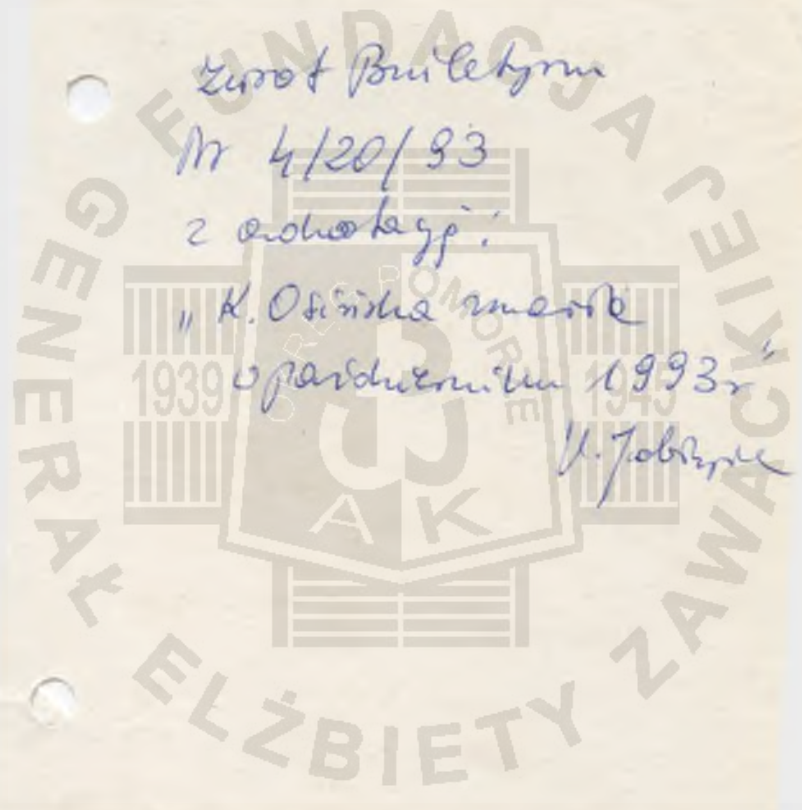 zwrot Biuletynu
Nr 4/20/93
z adnotacją:
„K. Osińska zmarła
w październiku 1993r"
FUNDACJA GENERAŁ ELŻBIETY ZAWACKIEJ
OKRĘG POMORZE
1939 1945
AK